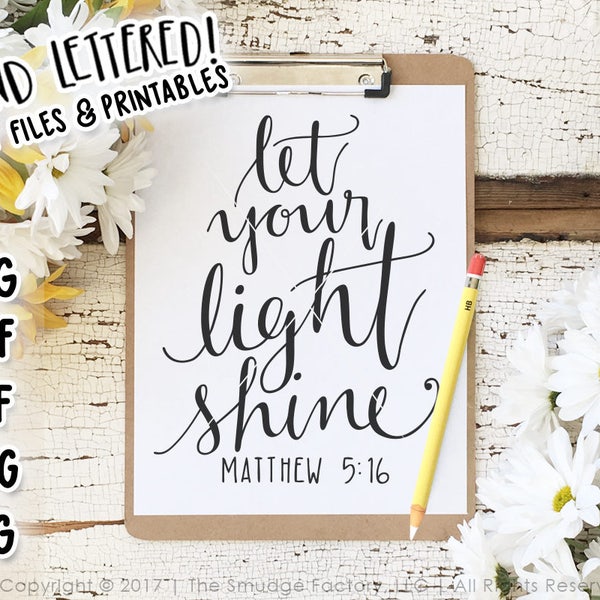 ND LETTERED!
FILES & PRINTABLES
let
your
light
shine
MATTHEW 5:16
HB
G
F
F
G
G
Copyright © 2017 | The Smudge Factory, LLC | All Rights Reserv